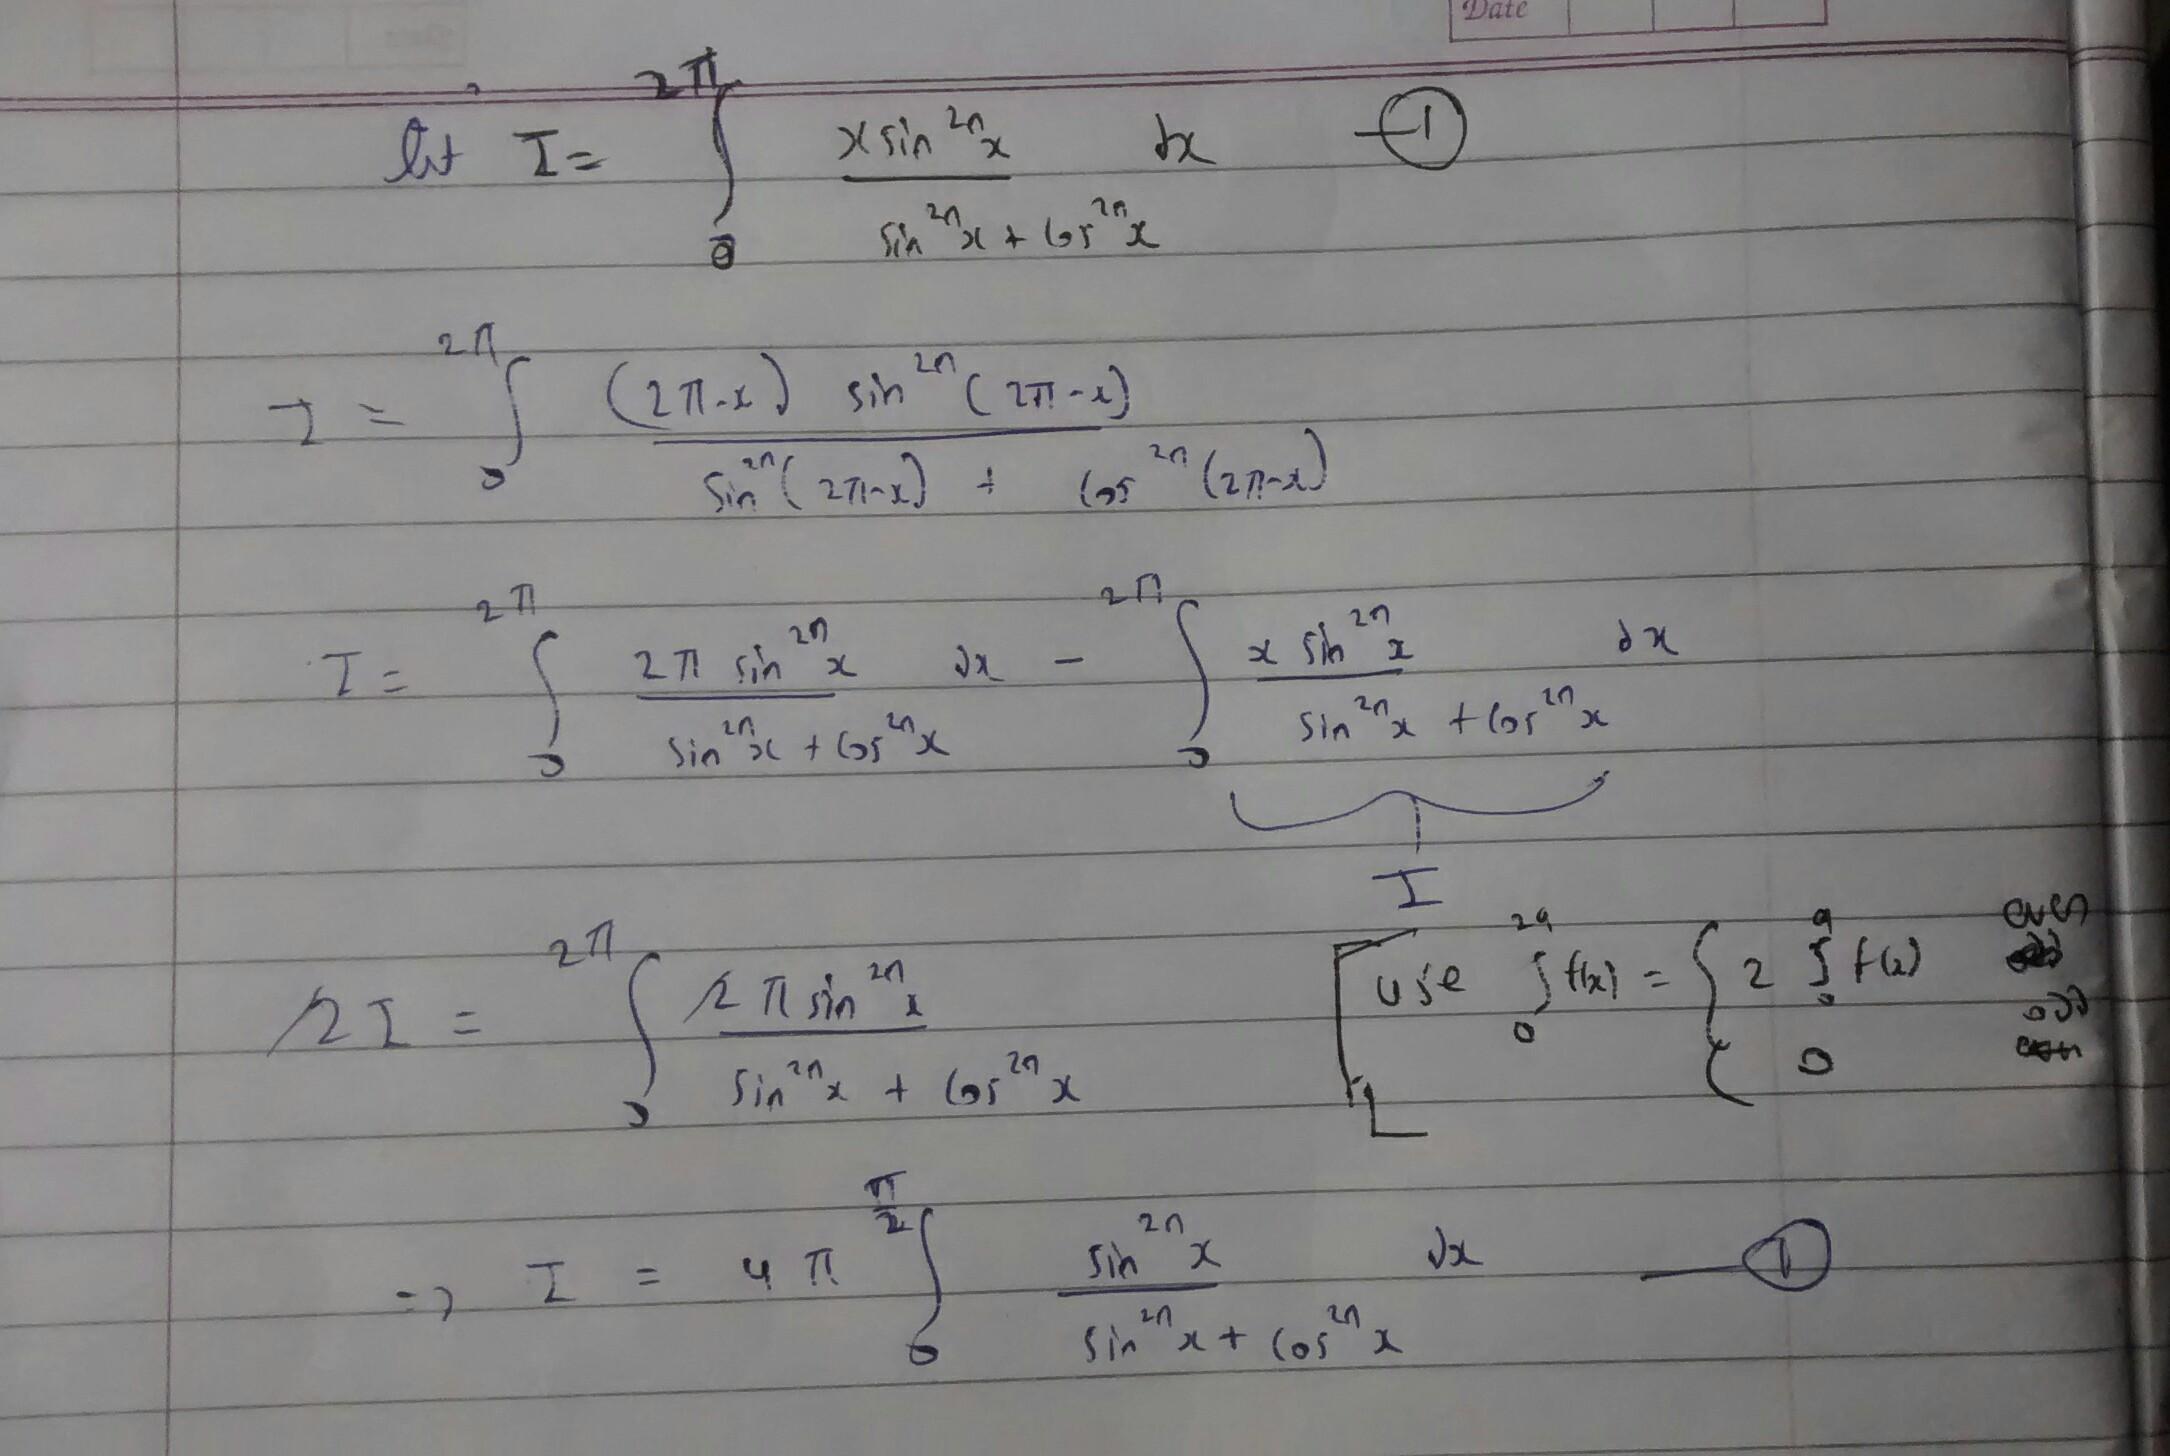 Date
let I = ∫₀^{2π} x sin^{2n}x / (sin^{2n}x + cos^{2n}x) dx —①
I = ∫₀^{2π} (2π-x) sin^{2n}(2π-x) / (sin^{2n}(2π-x) + cos^{2n}(2π-x))
I = ∫₀^{2π} 2π sin^{2n}x / (sin^{2n}x + cos^{2n}x) dx - ∫₀^{2π} x sin^{2n}x / (sin^{2n}x + cos^{2n}x) dx
I
2I = ∫₀^{2π} 2π sin^{2n}x / (sin^{2n}x + cos^{2n}x)
[use ∫₀^{2a} f(x) = { 2 ∫₀^{a} f(x) even
0 odd
=> I = 4π ∫₀^{π/2} sin^{2n}x / (sin^{2n}x + cos^{2n}x) dx —①